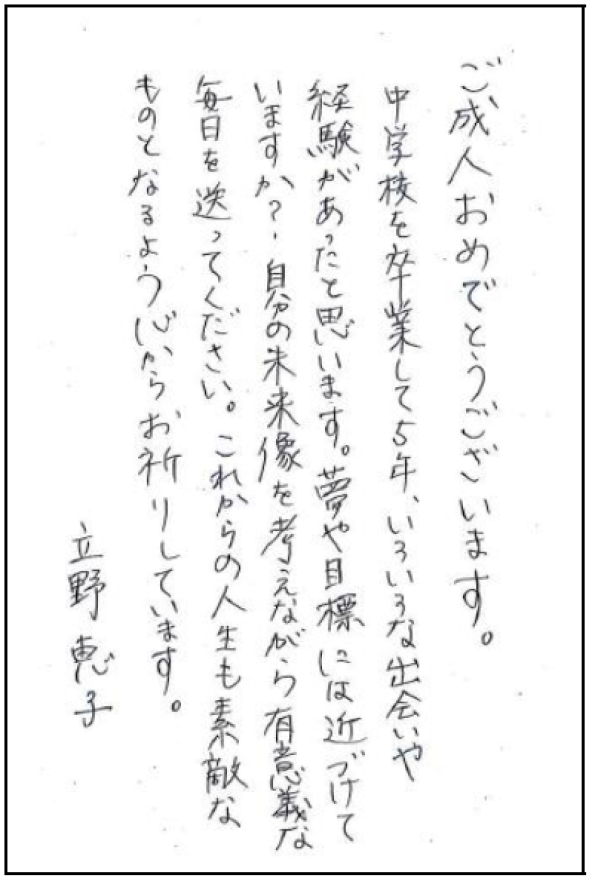 ご成人おめでとうございます。
中学校を卒業して5年、いろいろな出会いや
経験があったと思います。夢や目標には近づけて
いますか?自分の未来像を考えながら有意義な
毎日を送ってください。これからの人生も素敵な
ものとなるよう心からお祈りしています。
立野恵子